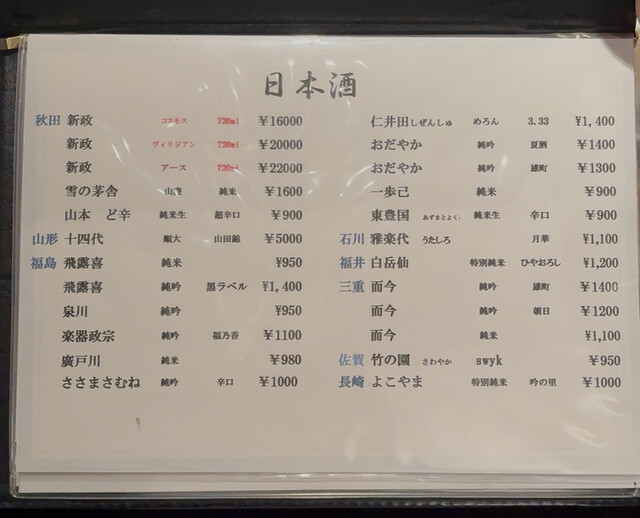 日本酒
秋田 新政 コスモス 720ml ￥16000
新政 ヴィリジアン 720ml ￥20000
新政 アース 720ml ￥22000
雪の茅舎 山廃 純米 ￥1600
山本 ど辛 純米生 超辛口 ￥900
山形 十四代 順大 山田錦 ￥5000
福島 飛露喜 純米 ¥950
飛露喜 純吟 黒ラベル ¥1,400
泉川 純吟 ¥950
楽器政宗 純吟 福乃香 ￥1100
廣戸川 純米 ￥980
ささまさむね 純吟 辛口 ￥1000
仁井田しぜんしゅ めろん 3.33 ¥1,400
おだやか 純吟 夏酒 ￥1400
おだやか 純吟 雄町 ￥1300
一歩己 純米 ￥900
東豊国 あずまとよくに 純米生 辛口 ￥900
石川 雅楽代 うたしろ 月華 ¥1,100
福井 白岳仙 特別純米 ひやおろし ¥1,200
三重 而今 純吟 雄町 ￥1400
而今 純吟 朝日 ￥1200
而今 純米 ¥1,100
佐賀 竹の園 さわやか swyk ￥950
長崎 よこやま 特別純米 吟の里 ￥1000